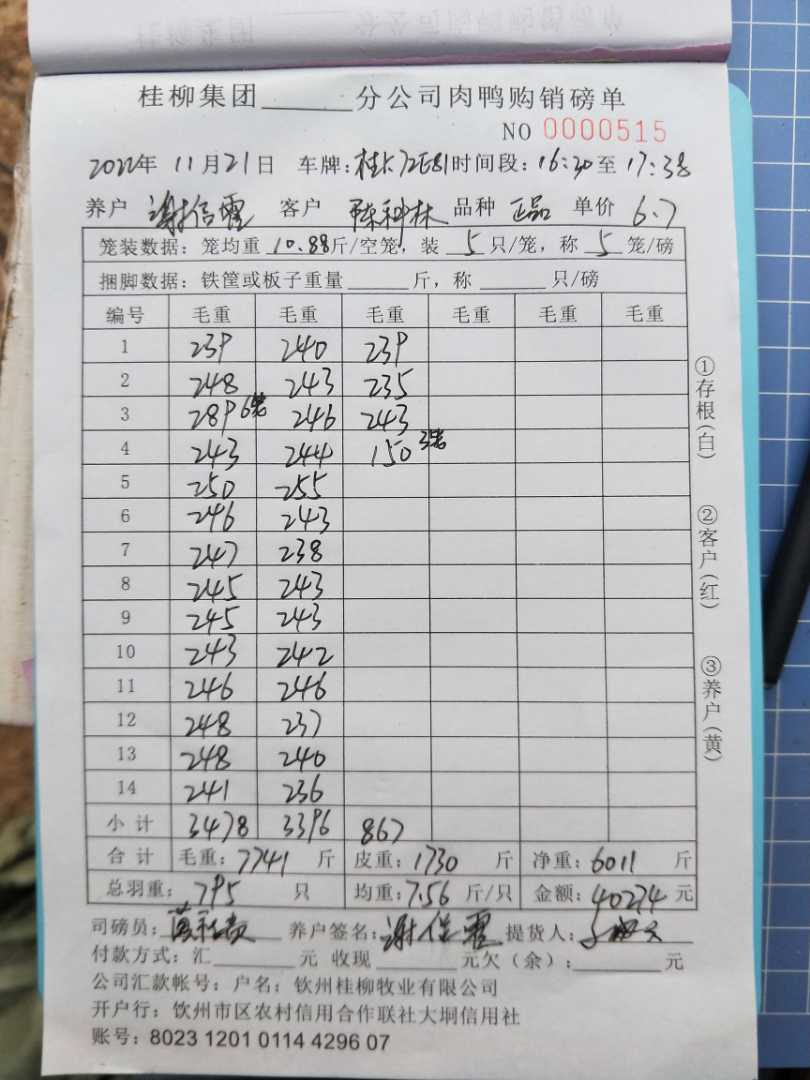 桂柳集团______分公司肉鸭购销磅单
NO 0000515
2022年 11月21日 车牌: 时间段:16:30至17:38
养户 谢信霍 客户 陈种林 品种 正品 单价 6.7
笼装数据:笼均重 10.88斤/空笼,装 5 只/笼,称 5 笼/磅
捆脚数据:铁筐或板子重量______斤,称______只/磅
编号 毛重 毛重 毛重 毛重 毛重 毛重
1 239 240 239
2 248 243 235
3 289 6笼 246 243
4 243 244 150 3笼
5 250 255
6 246 243
7 247 238
8 245 243
9 245 243
10 243 242
11 246 246
12 248 237
13 248 240
14 241 236
小计 3478 3396 867
合计 毛重:7741 斤 皮重:1730 斤 净重:6011 斤
总羽重: 795 只 均重:7.56 斤/只 金额:40274 元
司磅员: 养户签名: 谢信霍 提货人:
付款方式:汇______元 收现______元欠(余):______元
公司汇款帐号:户名:钦州桂柳牧业有限公司
开户行:钦州市区农村信用合作联社大垌信用社
账号:8023 1201 0114 4296 07
①存根(白)
②客户(红)
③养户(黄)